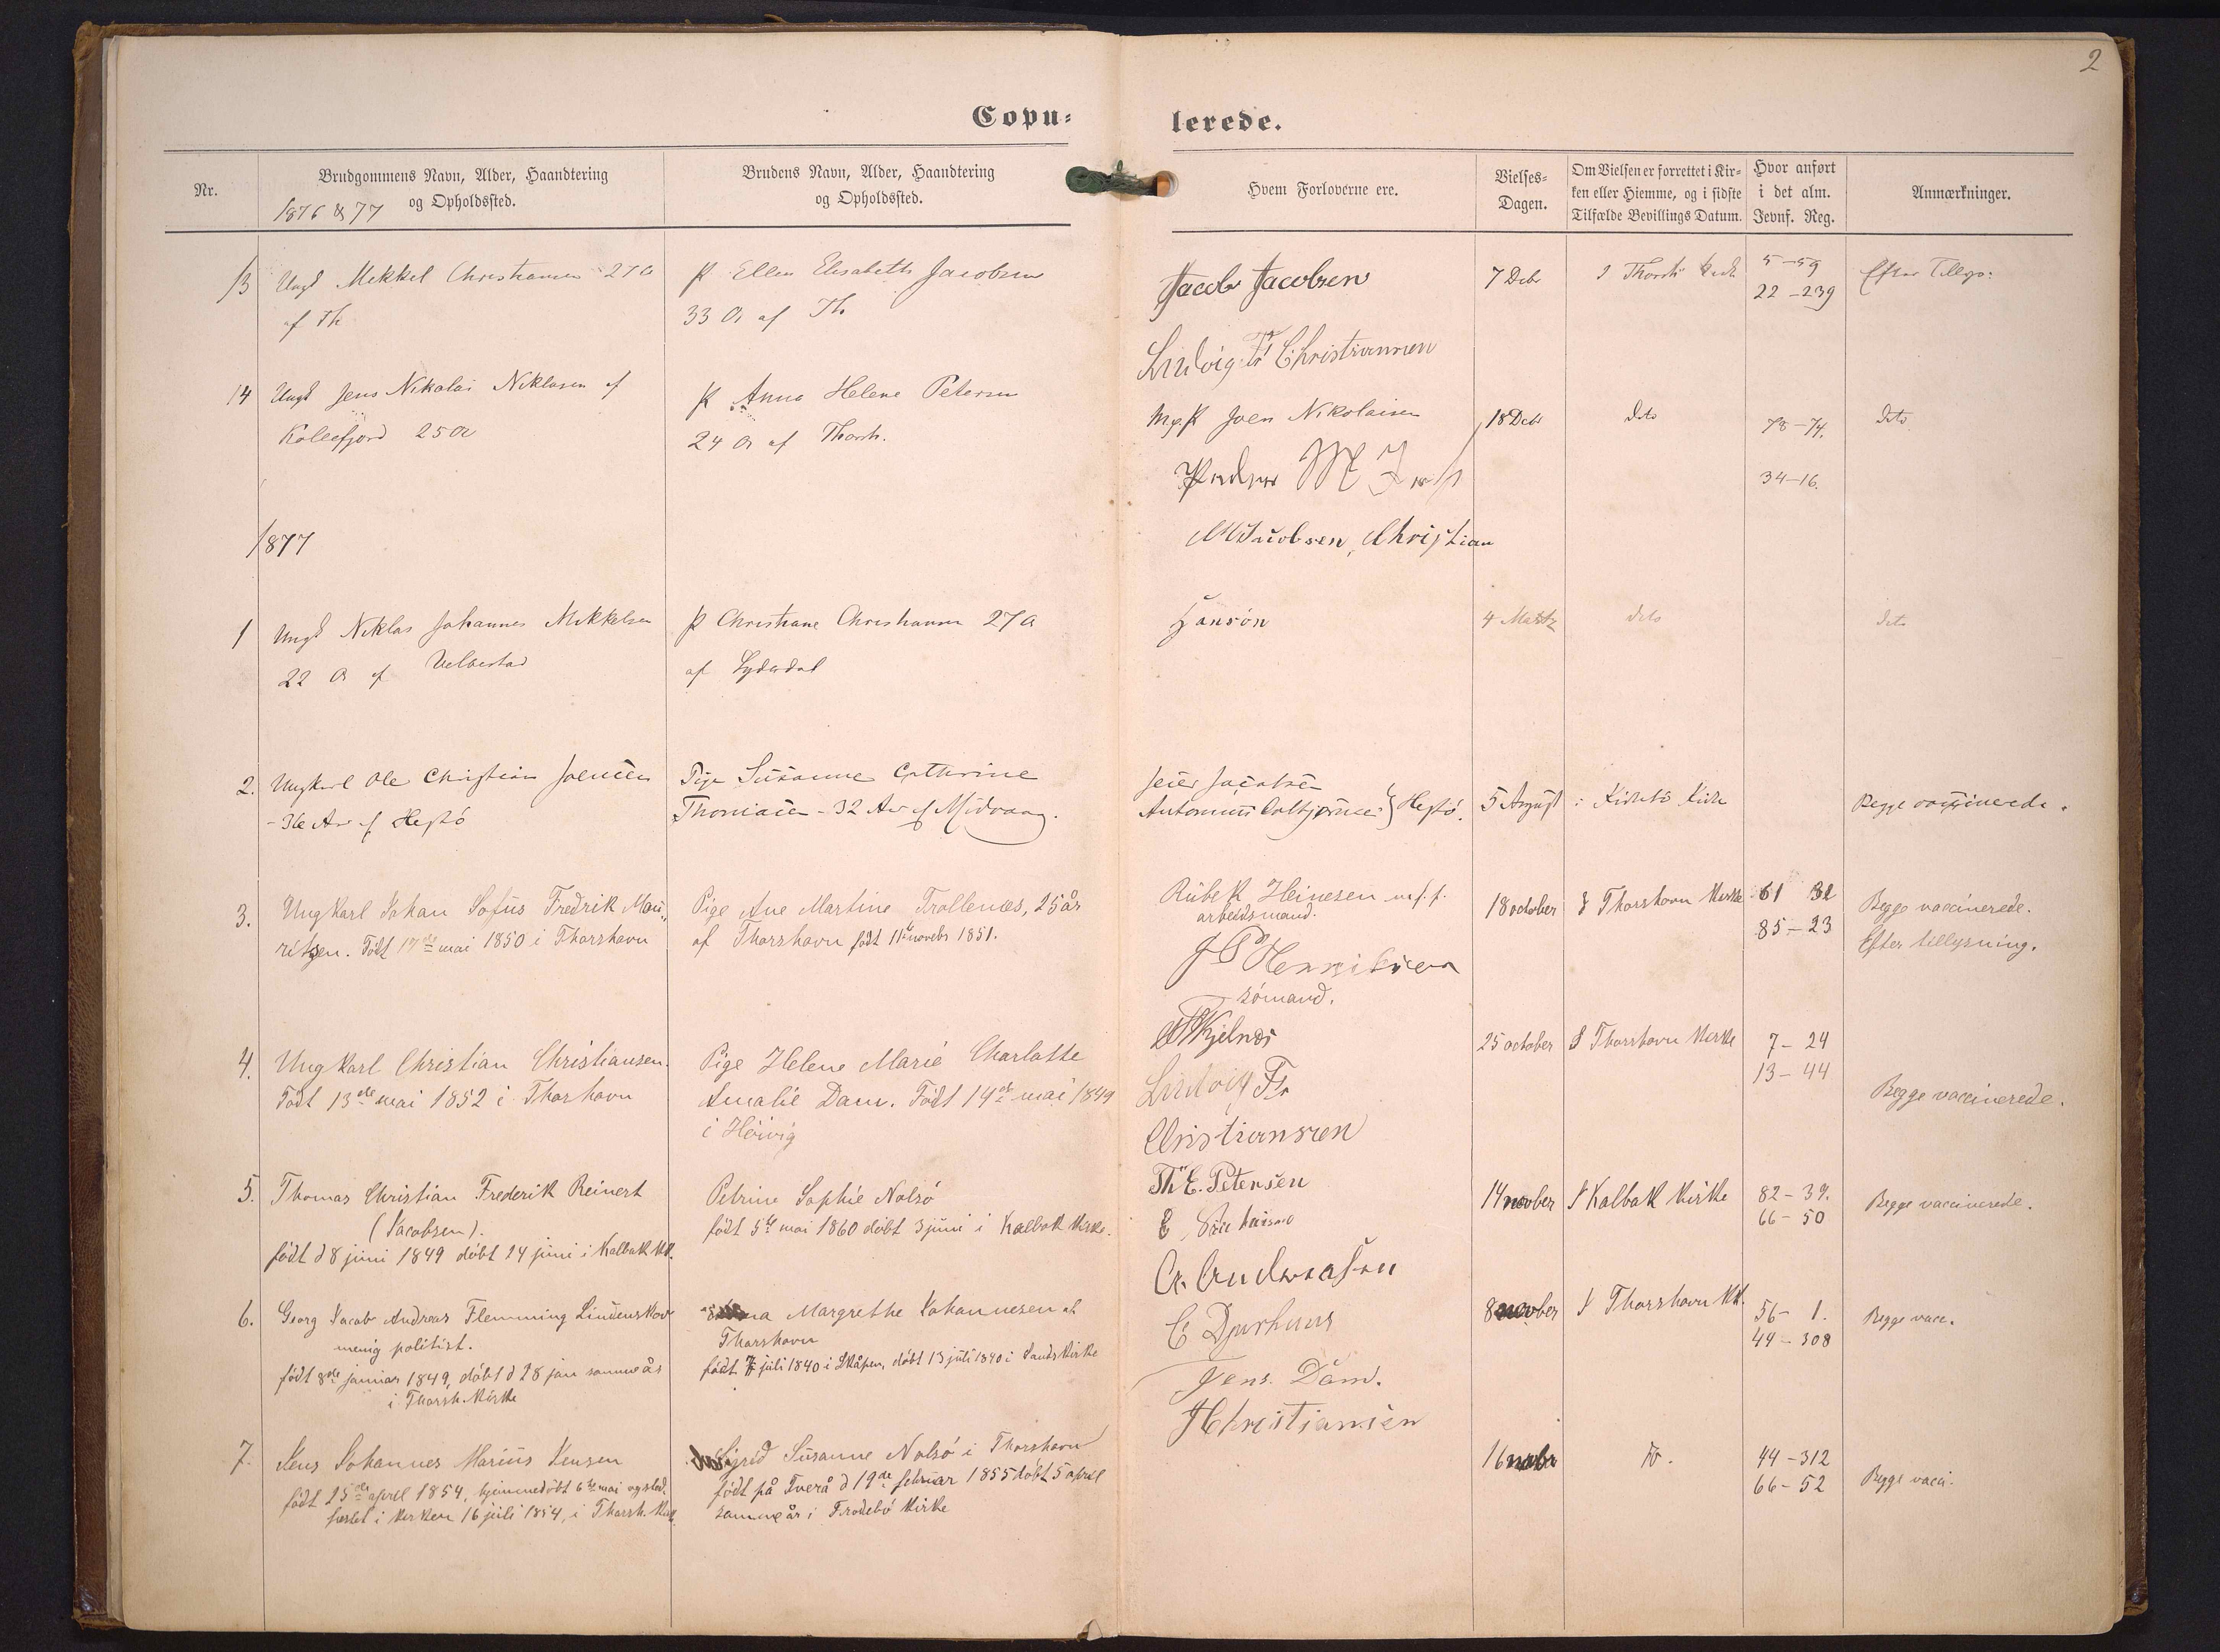 2
Copu⸗ lerede.
Nr.
Brudgommens Navn, Alder, Haandtering
og Opholdssted.
1876 & 77
Brudens Navn, Alder, Haandtering
og Opholdssted.
Hvem Forloverne ere.
Vielses⸗
Dagen.
Om Vielsen er forrettet i Kir⸗
ken eller Hjemme, og i sidste
Tilfælde Bevillings Datum.
Hvor anført
i det alm.
Jevnf. Reg.
Anmærkninger.
13 Ungk Mekkel Christiansen 27 a
af Th
P Ellen Elisabeth Jacobsen
33 A af Th
Jacob Jacobsen
Ludvig Fr Christiansen
7 Debr
I Thorsh Kirk
5-59
22-239
Efter Tillys:
14 Ungk Jens Nikolai Niklasen af
Kollefjord 25 A
P Anna Helene Petersen
24 A af Thorsh.
Joen Nikolaisen
18 Debr
dito
78-74.
34-16.
dito
1877
M Jacobsen, Christian
1 Ungk Niklas Johannes Mikkelsen
22 A af Velbestad
P Christiane Christiansen 27 A
af Sydredal
Hansön
4 Martz
dito
dito
2. Ungkarl Ole Christian Joensen
- 36 Aar af Hestö
Pige Susanne Cathrine
Thomasen - 32 Aar af Midvaag.
Jacobsen
Hestö.
5 August
i Kirke
Begge vaccinerede.
3. Ungkarl Johan Sofus Fredrik Mau„
ritzen. Födt 17de mai 1850 i Thorshavn
Pige Ane Martine Trollenæs, 25 år
af Thorshavn födt 11te novebr 1851.
Rübek Heinesen
arbeidsmand.
J P Henriksen
sömand.
18 october
I Thorshavn Kirke
61 32
85-23
Begge vaccinerede.
Efter tillysning.
4. Ungkarl Christian Christiansen.
Födt 13de mai 1852 i Thorshavn
Pige Helene Marie Charlotte
Amalie Dam. Födt 14de mai 1849
i Hoivig
Kjelnæs
Ludvig Fr
Christiansen
25 october
I Thorshavn Kirke
7-24
13-44
Begge vaccinerede.
5. Thomas Christian Frederik Reinert
(Jacobsen).
födt d 8 juni 1849 döbt 24 juni i Kalbak Kk.
Petrine Sophie Nolsö
födt 5te mai 1860 döbt 3 juni i Kalbak Kirke.
Th E. Petersen
14 novber
I Kalbak Kirke
82-39.
66-50
Begge vaccinerede.
6. Georg Jacob Andreas Flemming Lindenskov
menig politist.
födt 8de januar 1849, döbt d 28 jan samme år
i Thorsh. Kirke
Margrethe Johannesen af
Thorshavn
födt 7 juli 1840 i Skåpen, döbt 13 juli 1840 i Sands Kirke
Andreasen
E Djurhuus
8 novber
I Thorshavn Kk.
56-1.
44-308
Begge vacc.
7. Jens Johannes Marius Jensen
födt 25de april 1854, hjemmedöbt 6te mai
i Kirken 16 juli 1854, i Thorsh. Kirk
Sigrid Susanne Nolsö i Thorshavn
födt på Tverå d 19de februar 1855 döbt 5 april
samme år i Frodebö Kirke
Jens. Dam.
J Christiansen
16 novbr
44-312
66-52
Begge vacci.